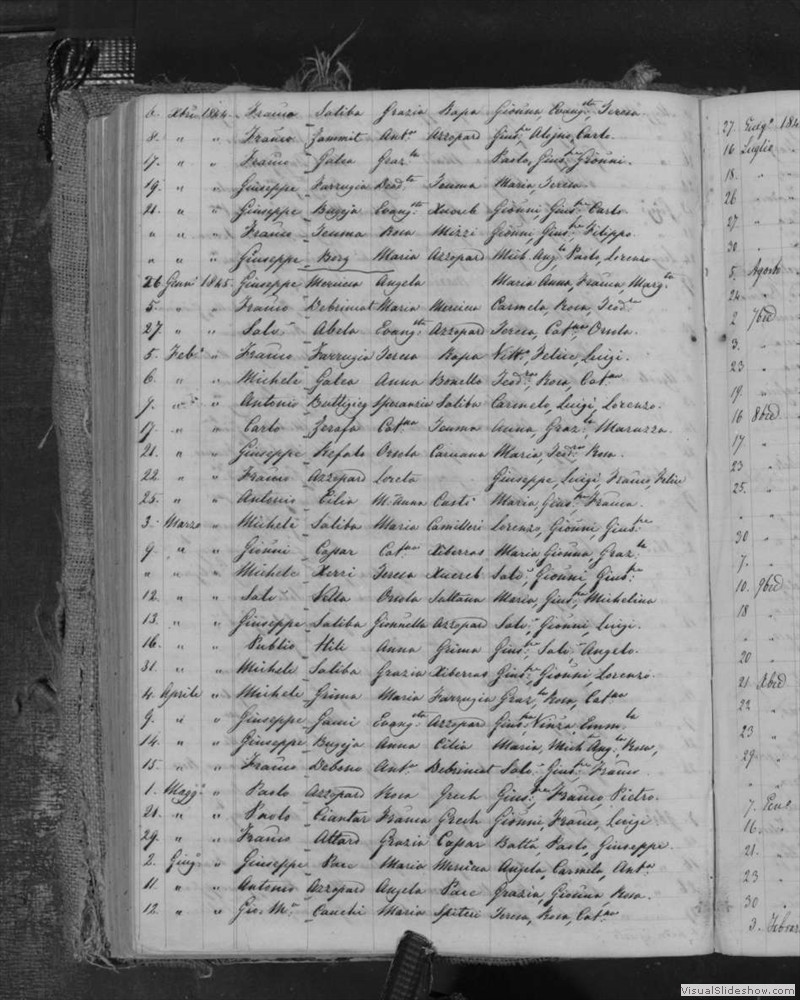 6. Xbre 1844 Franco Saliba Grazia Rapa Gionna, Evang.ta Teresa
8. " " Franco Zammit Ant.a Azzopard Gius.e, Alojsio, Carlo.
17. " " Franco Galea Graz.la Paolo, Gius.e Gionni.
19. " " Giuseppe Farrugia Deod.ta Teuma Maria, Teresa
21. " " Giuseppe Bugeja Evang.ta Xuereb Gionni Gius.e Carlo
" " " Franco Teuma Rosa Mizzi Gionni, Gius.e Filippo
" " " Giuseppe Borg Maria Azzopard Mich. Ang.lo Paolo, Lorenzo
26 Genn. 1845. Giuseppe Mercieca Angela Maria Anna, Franca, Marg.ta
5. " " Franco Debrincat Maria Mercieca Carmela, Rosa, Teod.ra
27 " " Salv. Abela Evang.ta Azzopard Teresa, Cat.na Orsola
5. Feb.o " Franco Farrugia Teresa Rapa Vitt.a, Felice, Luigi.
6. " " Michele Galea Anna Bonello Teod.ra, Rosa, Cat.na
9. " " Antonio Buttigieg Speranza Saliba Carmelo, Luigi, Lorenzo.
17. " " Carlo Zerafa Cat.na Teuma Anna, Graz.la Maruzza
21. " " Giuseppe Refalo Orsola Caruana Maria, Teod.ra Rosa.
22. " " Franco Azzopard Loreta Giuseppe, Luigi, Franco, Felice
25. " " Antonio Cilia M. Anna Custo Maria, Gius.a Franca.
3. Marzo " Michele Saliba Maria Camilleri Lorenzo, Gionni Gius.pe
9. " " Gionni Caspar Cat.na Xiberras Maria Gionna Graz.la
" " " Michele Xerri Teresa Xuereb Salv. Gionni, Gius.e
12. " " Salv. Vella Orsola Sultana Maria, Gius.a Michelina
13. " " Giuseppe Saliba Gionnella Azzopard Salv. Gionni, Luigi.
16. " " Publio Hili Anna Grima Gius.e Salv. Angelo.
31. " " Michele Saliba Grazia Xiberras Gius.e Gionni, Lorenzo.
4. Aprile " Michele Grima Maria Farrugia Graz.la Rosa, Cat.na
9. " " Giuseppe Gauci Evang.ta Azzopard Gius.a, Vinza, Emm.la
14. " " Giuseppe Bugeja Anna Cilia Maria, Mich. Ang.la Rosa,
15. " " Franco Debono Ant.a Debrincat Salv. Gius.e Franco
1. Magg.o " Paolo Azzopard Rosa Grech Gius.e, Franco, Pietro.
21. " " Paolo Ciantar Franca Grech Gionni, Franco, Luigi
29. " " Franco Attard Grazia Caspar Batta, Paolo, Giuseppe.
2. Giug.o " Giuseppe Pace Maria Mercieca Angela, Carmela, Ant.a
11. " " Antonio Azzopard Angela Pace Grazia, Gionna, Rosa.
12. " " Gio. M.a Cauchi Maria Spiteri Teresa, Rosa, Cat.na
27. Giug.o 184
16 Luglio "
18. "
26 "
27 "
30 "
5. Agosto "
24. "
2 7bre
3. "
23 "
19. "
16 8bre
17 "
23 "
25. "
"
30 "
7. "
10. 9bre
18 "
"
20 "
21 Xbre
22 "
23 "
29. "
7. Gen
16. "
21. "
23 "
30 "
3. Febrar
VisualSlideshow.com